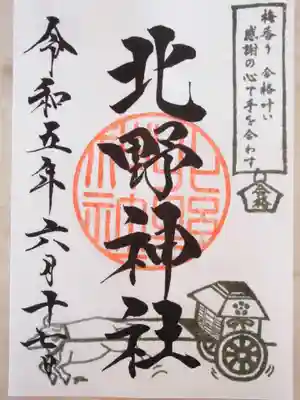 梅香り 合格叶い
感謝の心で手を合わす
北野神社
令和五年六月十七日